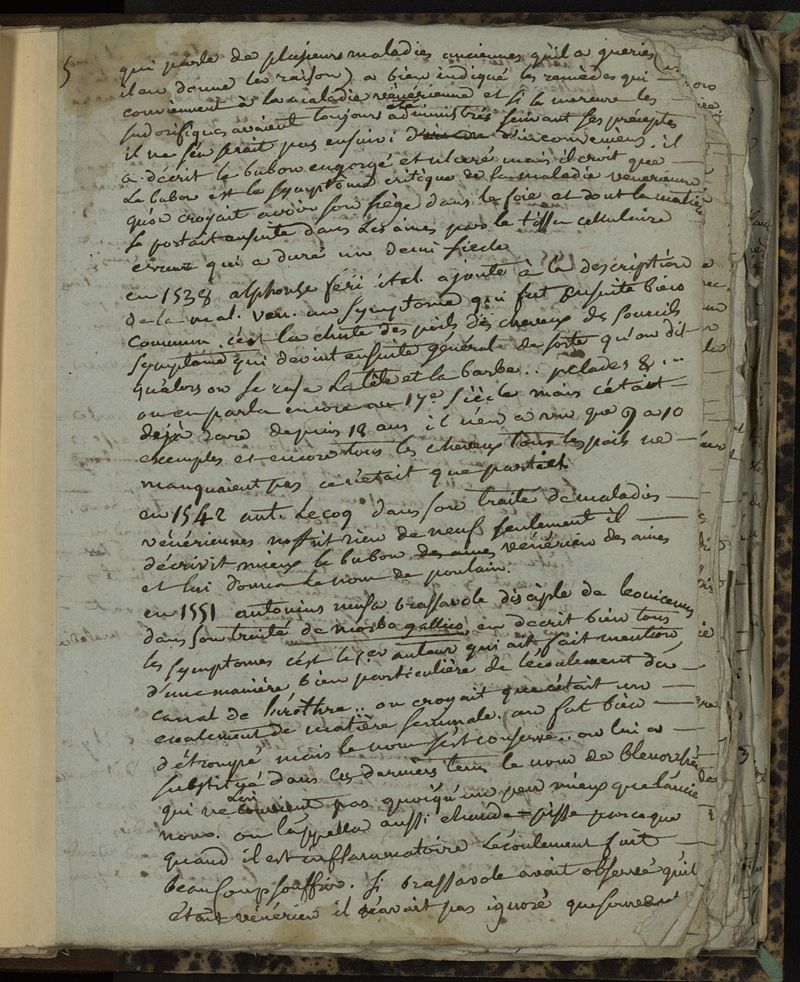 5
qui parle de plusieurs maladies anciennes qu'il a queries
il en donne les raison) a bien indiqué les remèdes qui
conviennent à la maladie vénérienne et si le mercure les
sudorifiques avaient toujours été administrés suivant ses préceptes
il ne s'en serait pas ensuivi d'inconveniens. il
a décrit le bubon engorgé et ulceré mais il croit que
Le bubon est le symptôme critique de la maladie venerienne
qu'on croyait avoir son siège dans le foie et dont la matière
se portait ensuite dans les aines par le tissu cellulaire
erreur qui a duré un demi siecle
en 1538 alphonse feri ital. ajouta à la description
de la mal. ven. un symptome qui fut ensuite bien
commun. c'est la chute des poils des cheveux des sourcils
symptome qui devint ensuite général de sorte qu'on dit
qu'alors on se rasa la tête et la barbe .. pelades & ..
on en parla encore au 17e siècle mais c'était
dejà rare depuis 18 ans il n'en a vu que 9 a 10
exemples et encore tous les cheveux tous les poils ne
manquaient pas ce n'était que partiel
en 1542 ant. Lecoq dans son traité de maladies
vénériennes n'offrit rien de neuf seulement il
décrivit mieux le bubon des aines vénérien des aines
et lui donna le nom de poulain.
en 1551 antonius musa brassavole disciple de leonicenus
dans son traité de morbo gallico, en decrit bien tous
les symptomes c'est le 1er auteur qui ait fait mention
d'une manière bien particulière de l'écoulement du
canal de l'urèthre .. on croyait que c'était un
ecoulement de matière seminale. on fut bien
détrompé mais le nom s'est conservé .. on lui a
substitué dans ces derniers tems le nom de blenorrhagie
qui ne lui convient pas quoiqu'un peu mieux que l'ancien
nom. on l'appella aussi chaude-pisse parceque
quand il est inflammatoire l'écoulement fait
beaucoup souffrir. si brassavole avait observé qu'il
était vénérien il n'avait pas ignoré que souvent